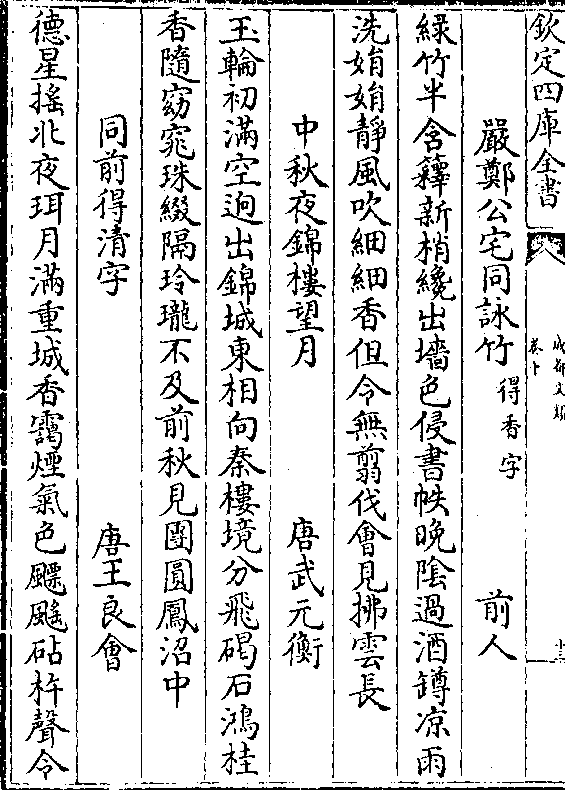 欽定四庫全書
成都文類
卷十
十三
嚴鄭公宅同詠竹 得香字 前人
綠竹半含籜新梢纔出墻色侵書帙晚陰過酒罇凉雨
洗娟娟靜風吹細細香但令無翦伐會見拂雲長
中秋夜錦樓望月 唐武元衡
玉輪初滿空迥出錦城東相向秦樓境分飛碣石鴻桂
香隨窈窕珠綴隔玲瓏不及前秋見團圓鳳沼中
同前得清字 唐王良會
德星搖北夜珥月滿重城香靄煙氣色飈颻砧杵聲令